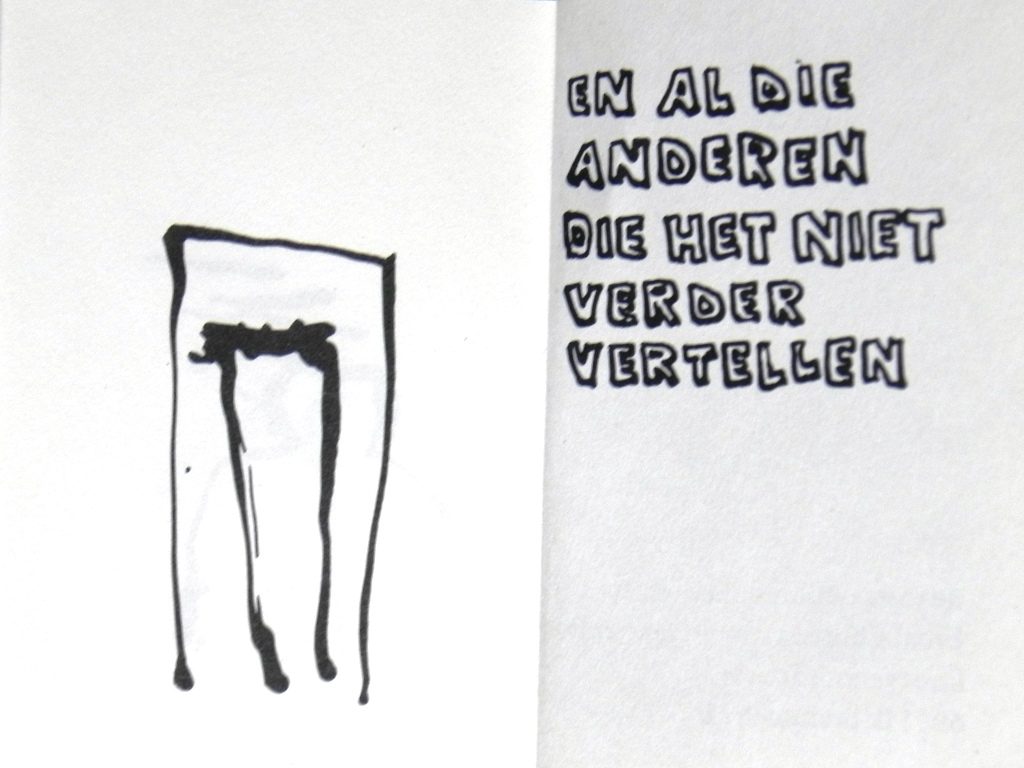 EN AL DIE
ANDEREN
DIE HET NIET
VERDER
VERTELLEN